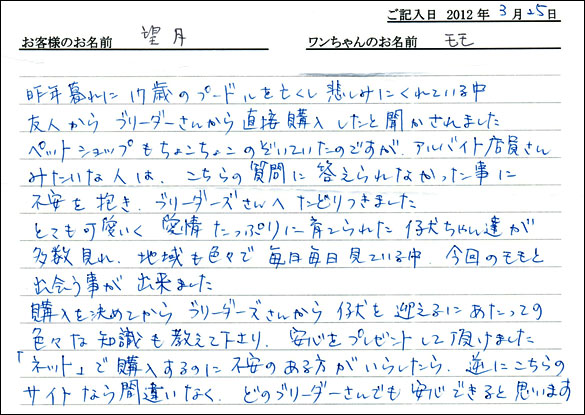 ご記入日 2012年 3月25日
お客様のお名前 望月 ワンちゃんのお名前 モモ
昨年暮れに 17歳のプードルを亡くし 悲しみにくれている中
友人から ブリーダーさんから 直接購入したと聞かされました
ペットショップもちょこちょこのぞいていたのですが、アルバイト店員さん
みたいな人は、こちらの質問に 答えられなかった事に
不安を抱き、ブリーダーズさんへ たどりつきました
とても可愛いく 愛情たっぷりに育てられた 仔犬ちゃん達が
多数見れ、地域も色々で 毎日毎日見ている中、今回のモモと
出会う事が 出来ました
購入を決めてから ブリーダーズさんから 仔犬を 迎えるにあたっての
色々な知識も教えて下さり、安心をプレゼントして頂けました
「ネット」で購入するのに 不安のある方がいらしたら、逆にこちらの
サイトなら間違いなく、どのブリーダーさんでも 安心できると思います